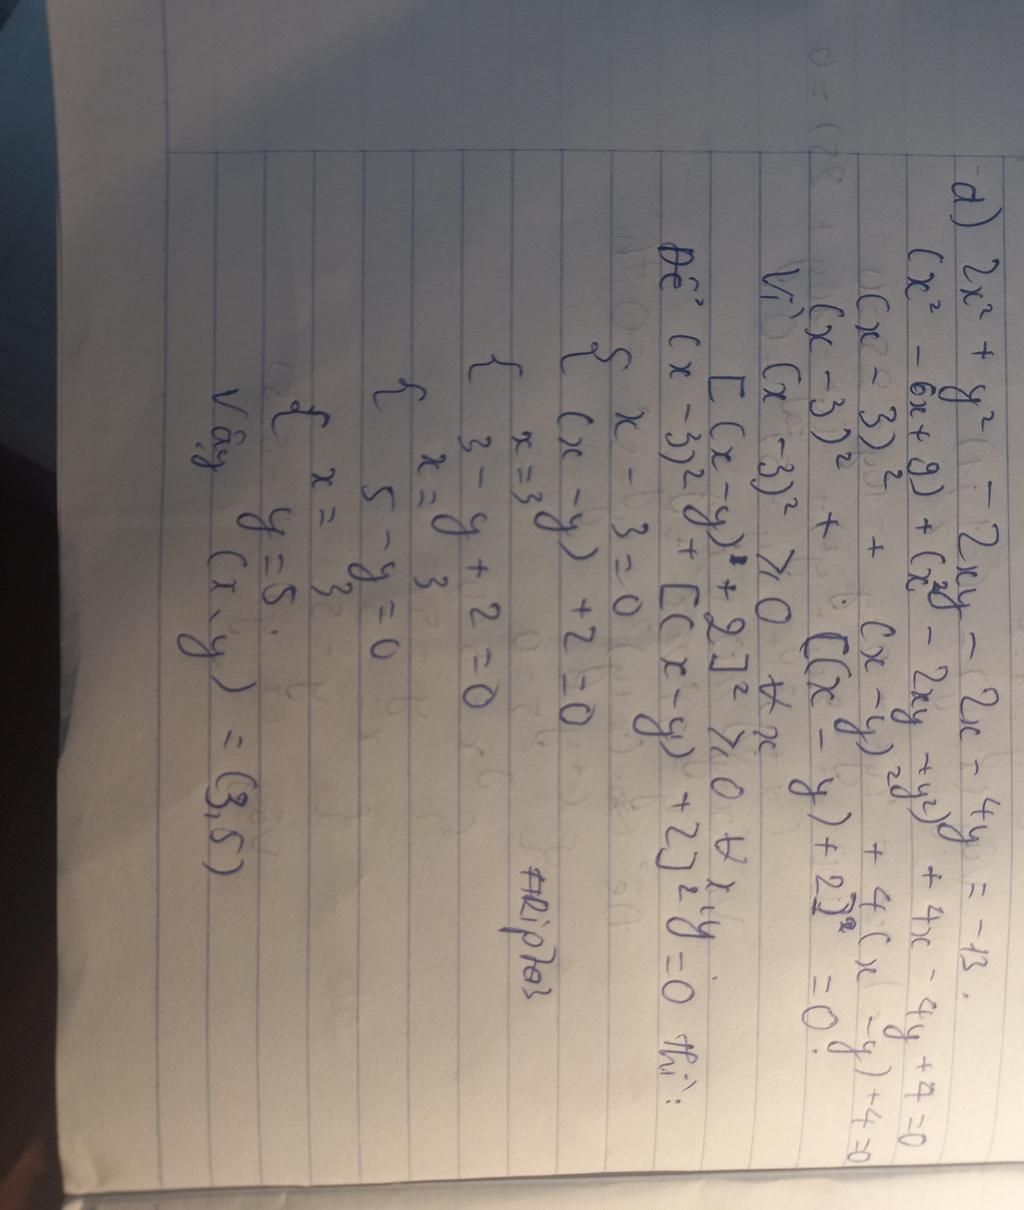 d) 2x² + y² - 2xy - 2x - 4y = -13.
(x² - 6x + 9) + (x² - 2xy + y²) + 4x - 4y + 4 = 0
(x - 3)² + (x - y)² + 4(x - y) + 4 = 0
(x - 3)² + [(x - y) + 2]² = 0.
Vì (x - 3)² ⩾ 0 ∀ x
[(x - y) + 2]² ⩾ 0 ∀ x, y.
Để (x - 3)² + [(x - y) + 2]² = 0 thì:
{ x - 3 = 0
(x - y) + 2 = 0
{ x = 3
3 - y + 2 = 0
{ x = 3
5 - y = 0
{ x = 3
y = 5.
Vậy (x, y) = (3, 5)